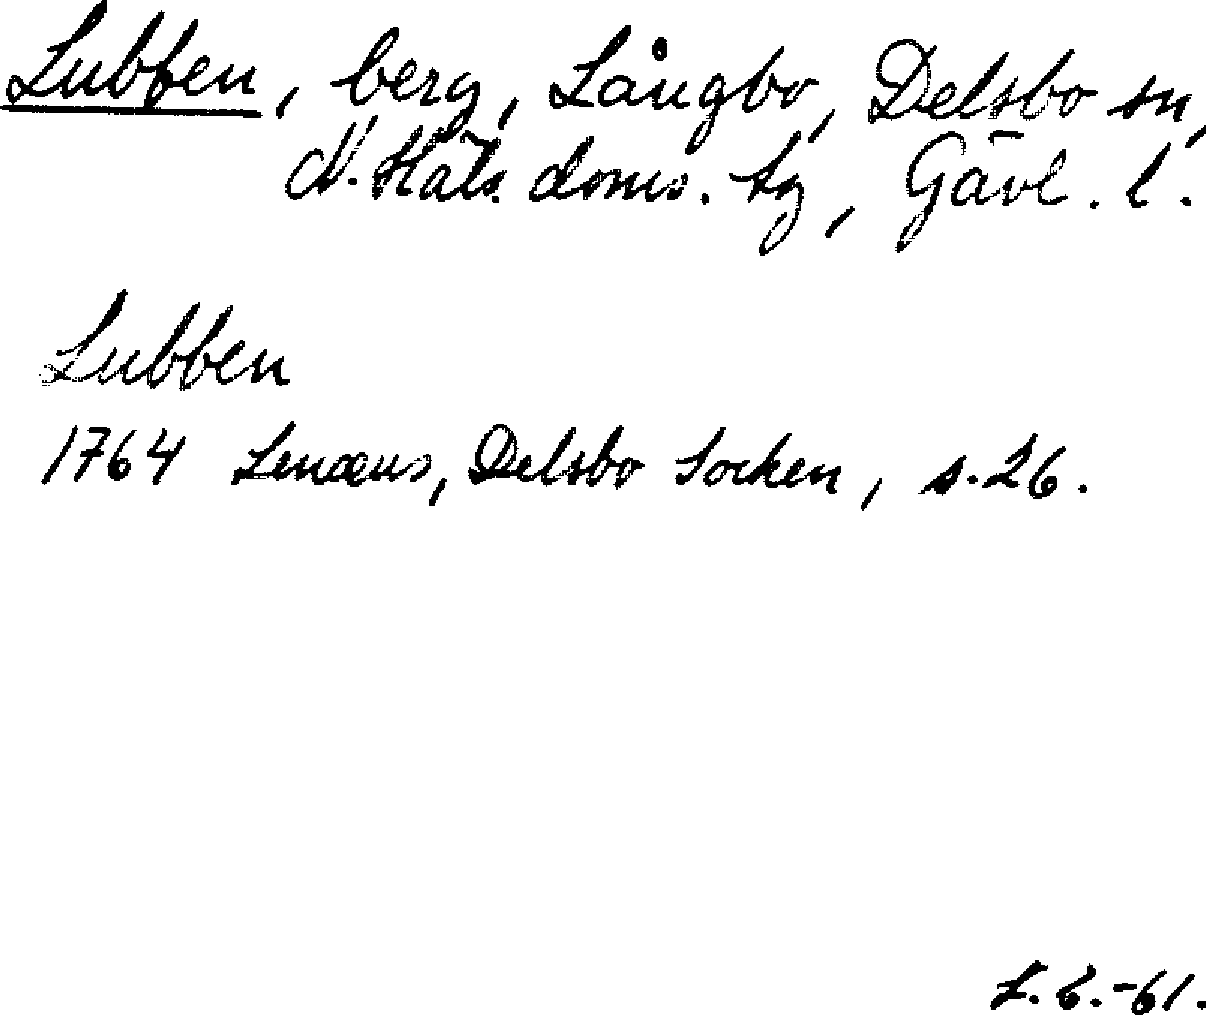 Lubben, berg, Långbo, Delsbo sn,
N. Häls. doms. tg, Gävl. l.
Lubben
1764 Lenæus, Delsbo Socken, s. 26.
L.E.-61.